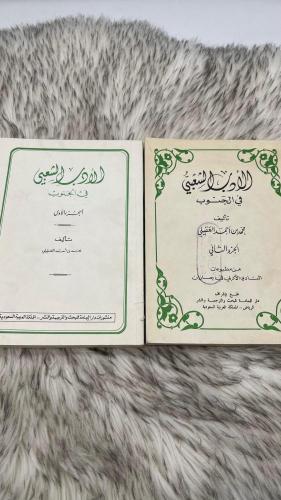 الأدب الشعبي
في الجنوب
الجزء الأول
تأليف
محمد بن أحمد العقيلي
منشورات دار اليمامة للبحث والترجمة والنشر - المملكة العربية السعودية
الأدب الشعبي
في الجنوب
تأليف
محمد بن أحمد العقيلي
الجزء الثاني
من مطبوعات
النادي الأدبي في جازان
دار اليمامة للبحث والترجمة والنشر
الرياض - المملكة العربية السعودية